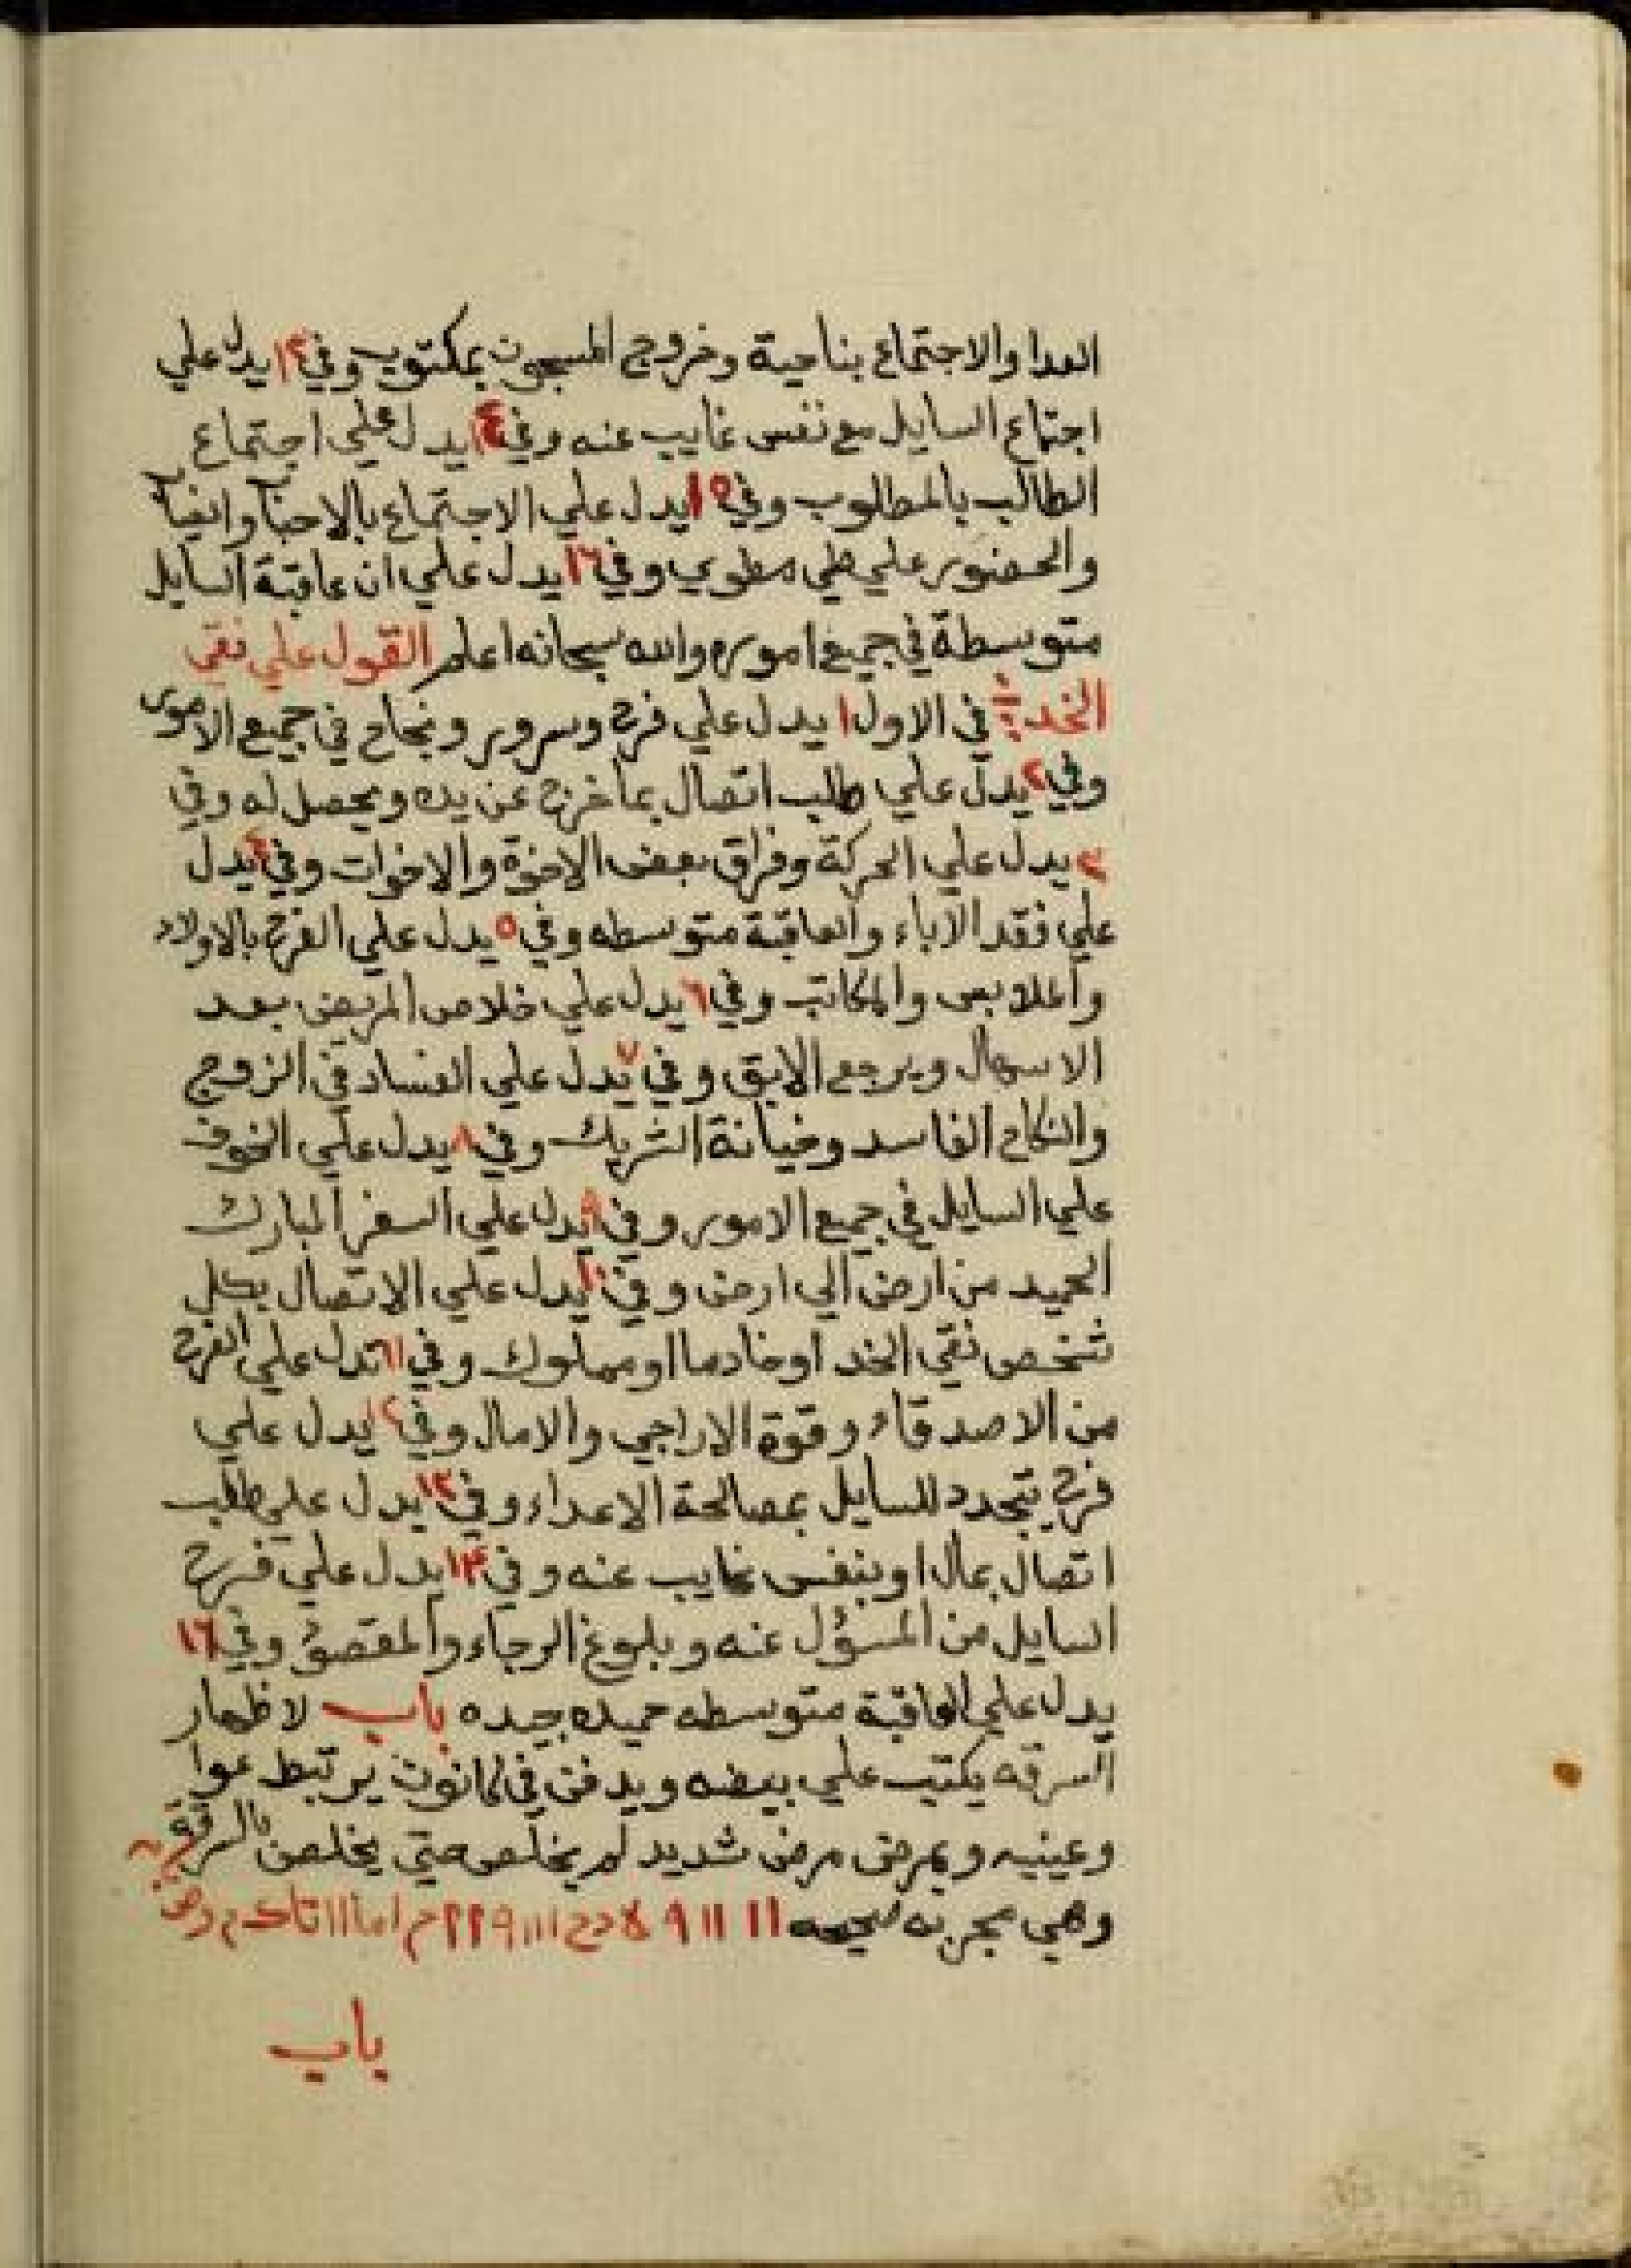 العدا والاجتماع بناحية وخروج المسجون بمكتوب وفي ١٣ يدل علي
اجتماع السايل مع نفس غايب عنه وفي ١٤ يدل علي اجتماع
الطالب بالمطلوب وفي ١٥ يدل علي الاجتماع بالاحبا والغياب
والحضور علي طي مطوي وفي ١٦ يدل علي ان عاقبة السايل
متوسطة في جميع اموره والله سبحانه اعلم القول علي نقي
الخد في الاول ١ يدل علي فرح وسرور ونجاح في جميع الامور
وفي ٢ يدل علي طلب اتصال بما خرج عن يده ويحصل له وفي
٣ يدل علي الحركة وفراق بعض الاخوة والاخوات وفي ٤ يدل
علي فقد الآباء والعاقبة متوسطه وفي ٥ يدل علي الفرح بالاولاد
والملابس والمكاتب وفي ٦ يدل علي خلاص المريض بعد
الاسهال ويرجع الابق وفي ٧ يدل علي الفساد في الزوج
والنكاح الفاسد وخيانة الشريك وفي ٨ يدل علي الخوف
علي السايل في جميع الامور وفي ٩ يدل علي السفر المبارك
الحميد من ارض الي ارض وفي ١٠ يدل علي الاتصال بكل
شخص نقي الخد او خادما او مملوك وفي ١١ تدل علي الفرح
من الاصدقاء وقوة الاراجي والامال وفي ١٢ يدل علي
فرح تتجدد للسايل بمصالحة الاعداء وفي ١٣ يدل علي طلب
اتصال بمال او بنفس غايب عنه وفي ١٤ يدل علي فرح
السايل من المسؤل عنه وبلوغ الرجاء والمقصود وفي ١٦
يدل علي العاقبة متوسطه حميده جيده باب لاظهار
السرقه يكتب علي بيضه ويدفن في كانون يرتبط
وعينيه ويمرض مرض شديد لم يخلص حتي يخلص بالسرقة
وهي مجربه صحيحه ١١ ١١ ٩
باب